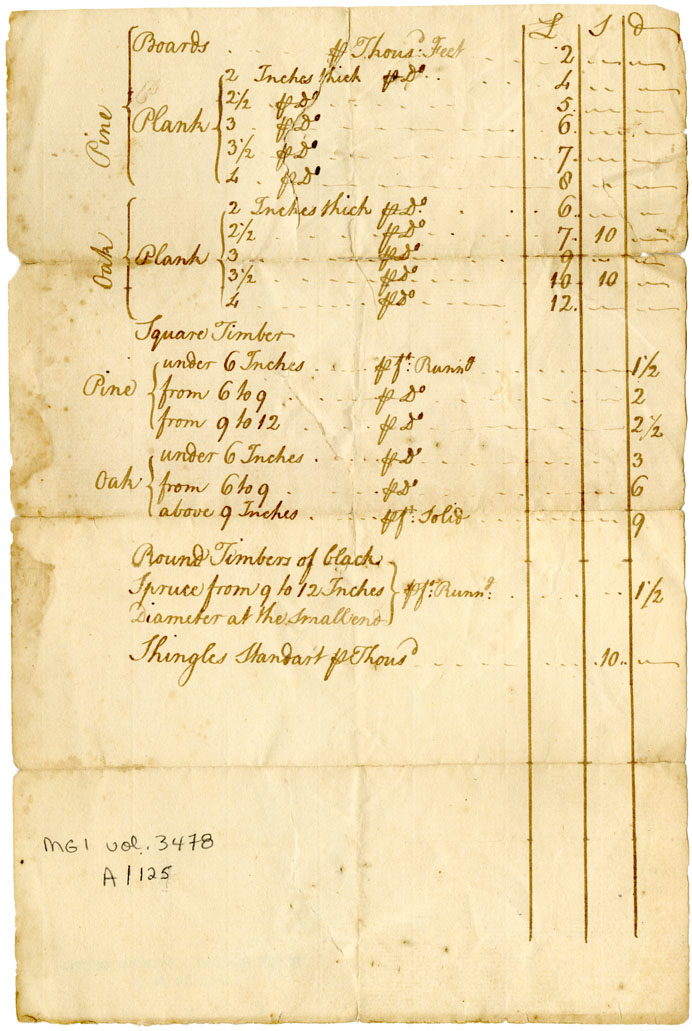 £ S d
Boards ℔ Thous:d Feet 2
Pine
Plank
2 Inches thick ℔ Do 4
2 1/2 ℔ Do 5
3 ℔ Do 6
3 1/2 ℔ Do 7
4 ℔ Do 8
Oak
Plank
2 Inches thick ℔ Do 6
2 1/2 ℔ Do 7 10
3 ℔ Do 9
3 1/2 ℔ Do 10 10
4 ℔ Do 12
Square Timber
Pine
under 6 Inches ℔ ft: Runng 1 1/2
from 6 to 9 ℔ Do 2
from 9 to 12 ℔ Do 2 1/2
Oak
under 6 Inches ℔ Do 3
from 6 to 9 ℔ Do 6
above 9 Inches ℔ ft: Solid 9
Round Timbers of black
Spruce from 9 to 12 Inches ℔ ft: Runng: 1 1/2
Diameter at the small end
Shingles Standart ℔ Thousd 10
MG1 vol. 3478
A/125